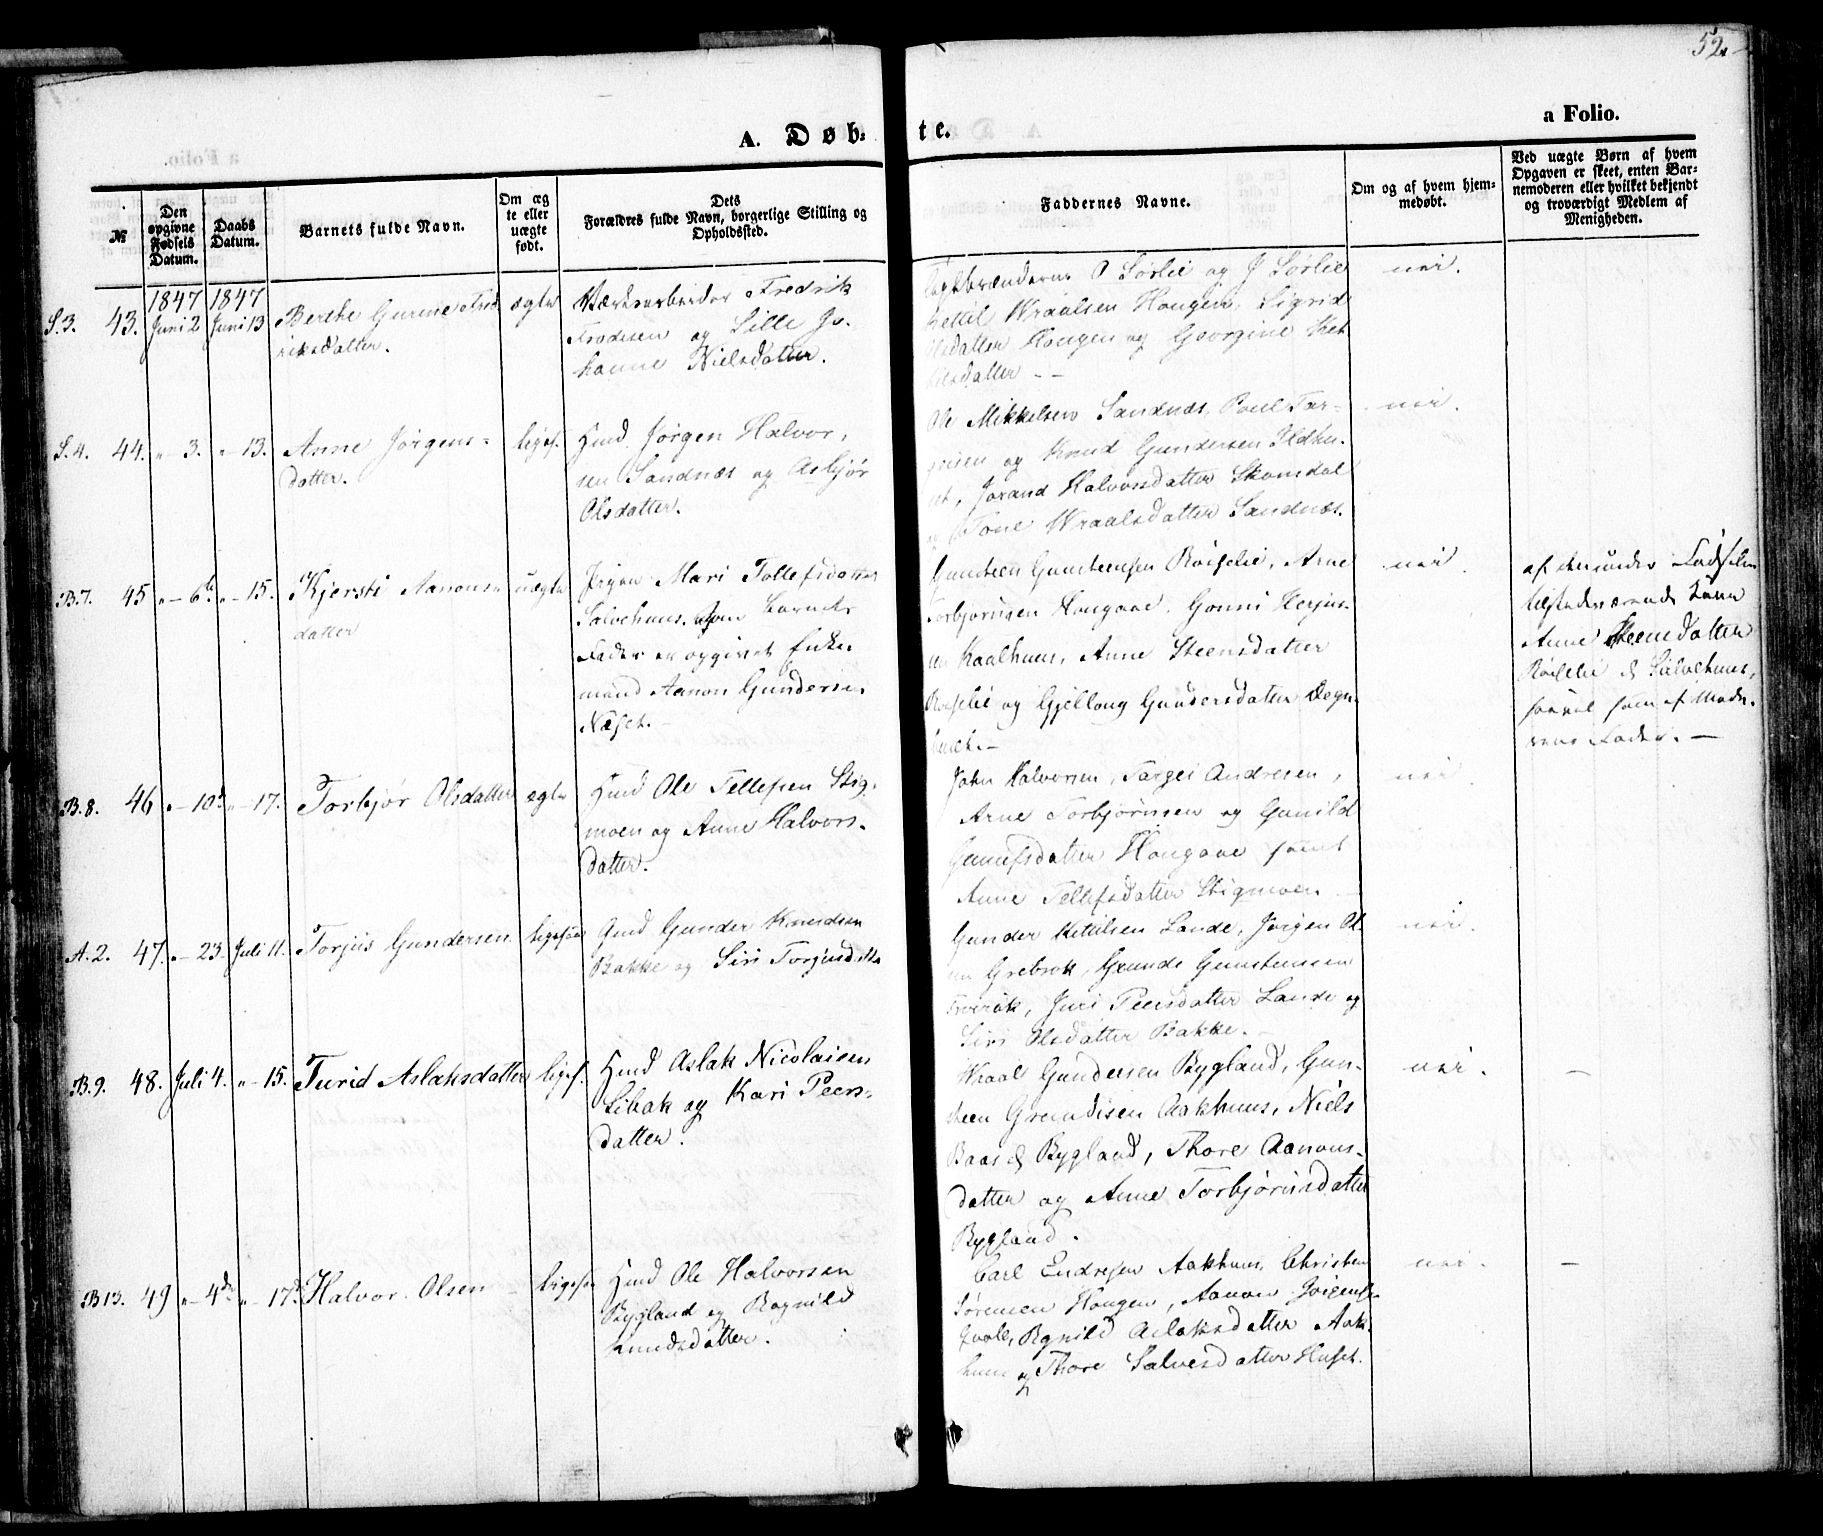 52.
A. Døb-
te.
a Folio.
№
Den opgivne Fødsels Datum.
Daabs Datum.
Barnets fulde Navn.
Om ægte eller uægte født.
Dets
Forældres fulde Navn, borgerlige Stilling og
Opholdssted.
Faddernes Navne.
Om og af hvem hjem-
medøbt.
Ved uægte Børn af hvem
Opgaven er skeet, enten Bar-
nemoderen eller hvilket bekjendt
og troværdigt Medlem af
Menigheden.
S.3. 43. 1847 Juni 2 1847 Juni 13
Berthe Gurine Fred
riksdatter.
ægte
Værksarbeider Fredrik
Frodesen og Sille Jo-
hanne Nielsdatter.
O Sørlie og J Sørlie
Kettil Wraalsen Hougen, Sigrid
datter Hougen og Georgine Ket
ilsdatter - -
nei.
S.4. 44. " - 3. " - 13.
Anne Jørgens-
datter.
liges.
Hmd. Jørgen Halvor,
sen Sandnæs og Asbjør
Olsdatter.
Ole Mikkelsen Sandnæs, Poul Tar-
og Knud Gundersen
Jorand Halvorsdatter Skomdal
og Tone Wraalsdatter Sandnæs.
nei.
B.7. 45 " - 6te " - 15.
Kjersti Aanons-
datter
uægte
Pigen Mari Tollefsdatter
Salvehuus. Som Barnets
Fader er opgivet Enke-
mand Aanon Gundersen
Næset. -
Gunsteen Gunsteensen Røiselie, Arne
Torbjørnsen Hougaae. Gonni Herjus-
en Kaalhuus, Anne Steensdatter
Røiselie og Gjelloug Gundersdatter Degn-
nei.
af den under Fødselen
tilstedeværende Kone
Anne Steensdatter
Røiselie & Salvehuus,
saavel som af Mode-
rens Fader. -
B.8. 46 " - 10de " - 17.
Torbjør Olsdatter
ægte
Hmd Ole Tellefsen Stig-
moen og Anne Halvors-
datter.
John Halvorsen, Targei Andresen,
Arne Torbjørnsen og Gunild
datter Hougaae samt
Anne Tellefsdatter Stigmoen.
nei
A.2. 47. " - 23. Juli 11.
Torjus Gundersen
ligesaa
Gmd Gunder Knudsen
Bakke og Siri Torjusdatter
Gunder Kittilsen Lande, Jørgen Ol
en Grebrok, Grunde Gunstensen
Juri Peersdatter Lande og
Siri Olsdatter Bakke. -
nei.
B.9. 48. Juli 4. " - 15.
Turid Aslaksdatter
liges.
Hmd Aslak Nicolaisen
Libak og Kari Peers-
datter.
Wraal Gundersen Bygland, Gun-
steen Grundisen Aakhuus, Niels
Baas & Bygland, Thore Aanons-
datter og Anne Torbjørnsdatter
Bygland.
nei. -
B 13. 49 " - 4de " - 17de
Halvor Olsen
ligesaa
Hmd Ole Halvorsen
Bygland og Ragnild
Knudsdatter.
Carl Endresen Aakhuus, Christen
Sørensen Hougen, Aanon Jørgense
Qvale, Ragnild Aslaksdatter Aak-
huus og Thore Salvesdatter Huset.
nei. -